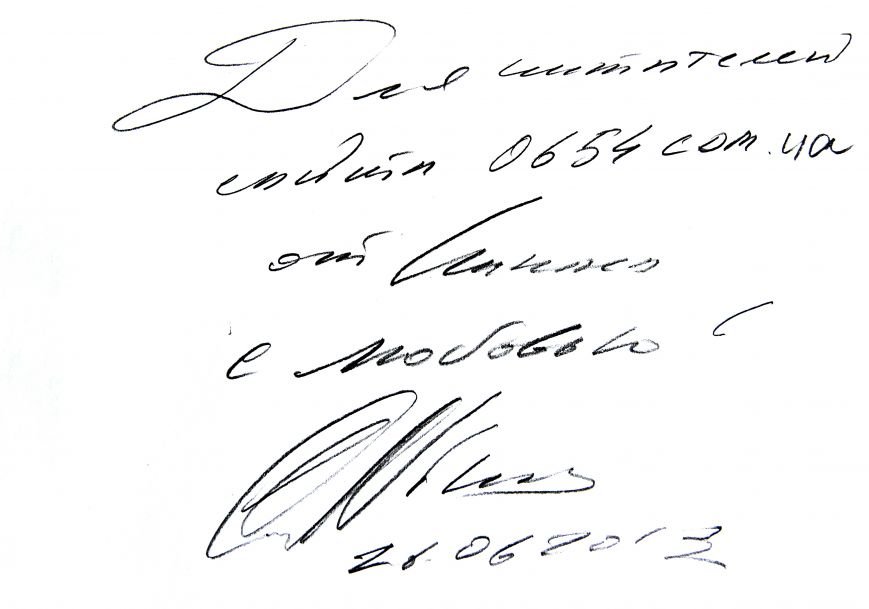 Для читателей
сайта 0654.com.ua
от
с любовью
06 2013